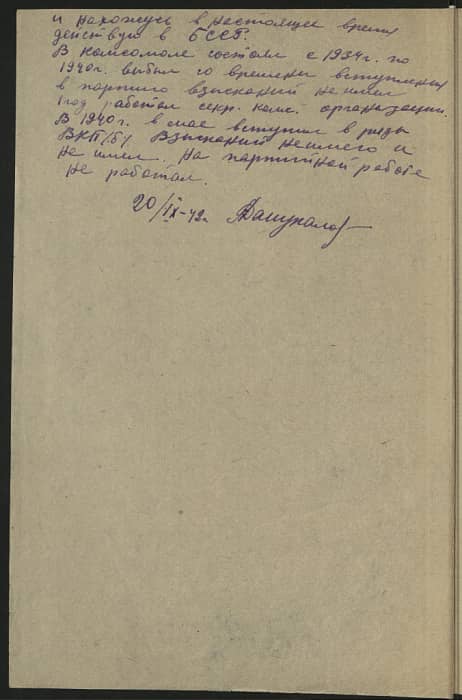 и нахожусь в настоящее время
действую в БССР.
В комсомоле состоял с 1934 г. по
1940 г. выбыл со времени вступления
в партию взысканий не имел
1 год работал секр. комс. организации.
В 1940 г. в мае вступил в ряды
ВКП/б/ взысканий не имел и
не имел. На партийной работе
не работал.
20/IX-42 г.